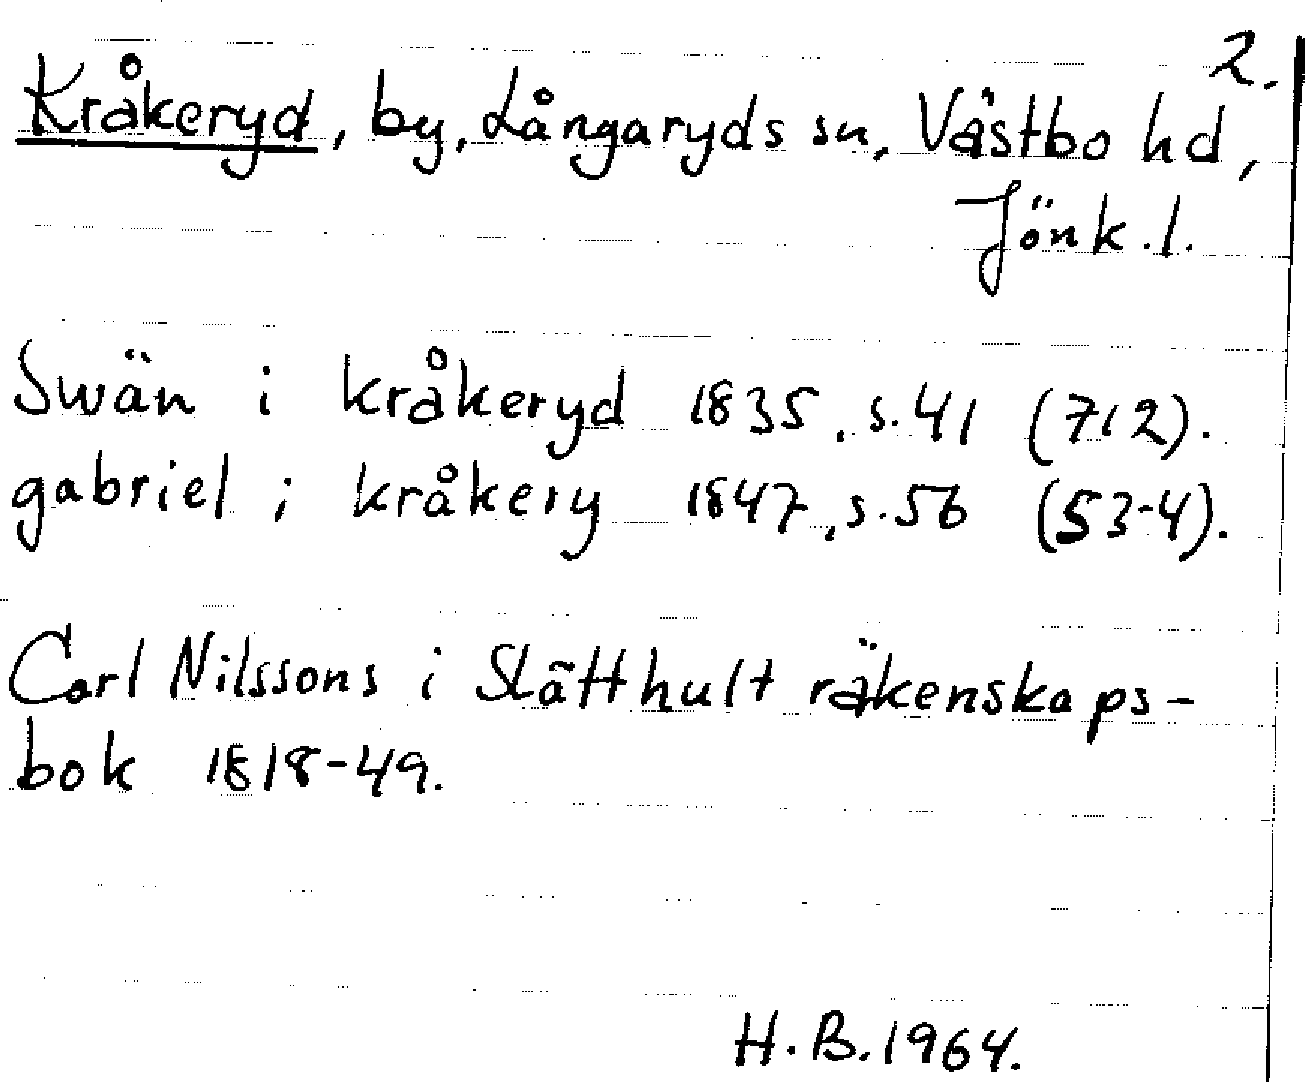 2.
Kråkeryd, by, Långaryds sn, Västbo hd,
Jönk.l.
Swän i kråkeryd 1835, s.41 (712).
gabriel i kråkery 1847, s.56 (53-4).
Carl Nilssons i Slätthult räkenskaps-
bok 1818-49.
H.B.1964.